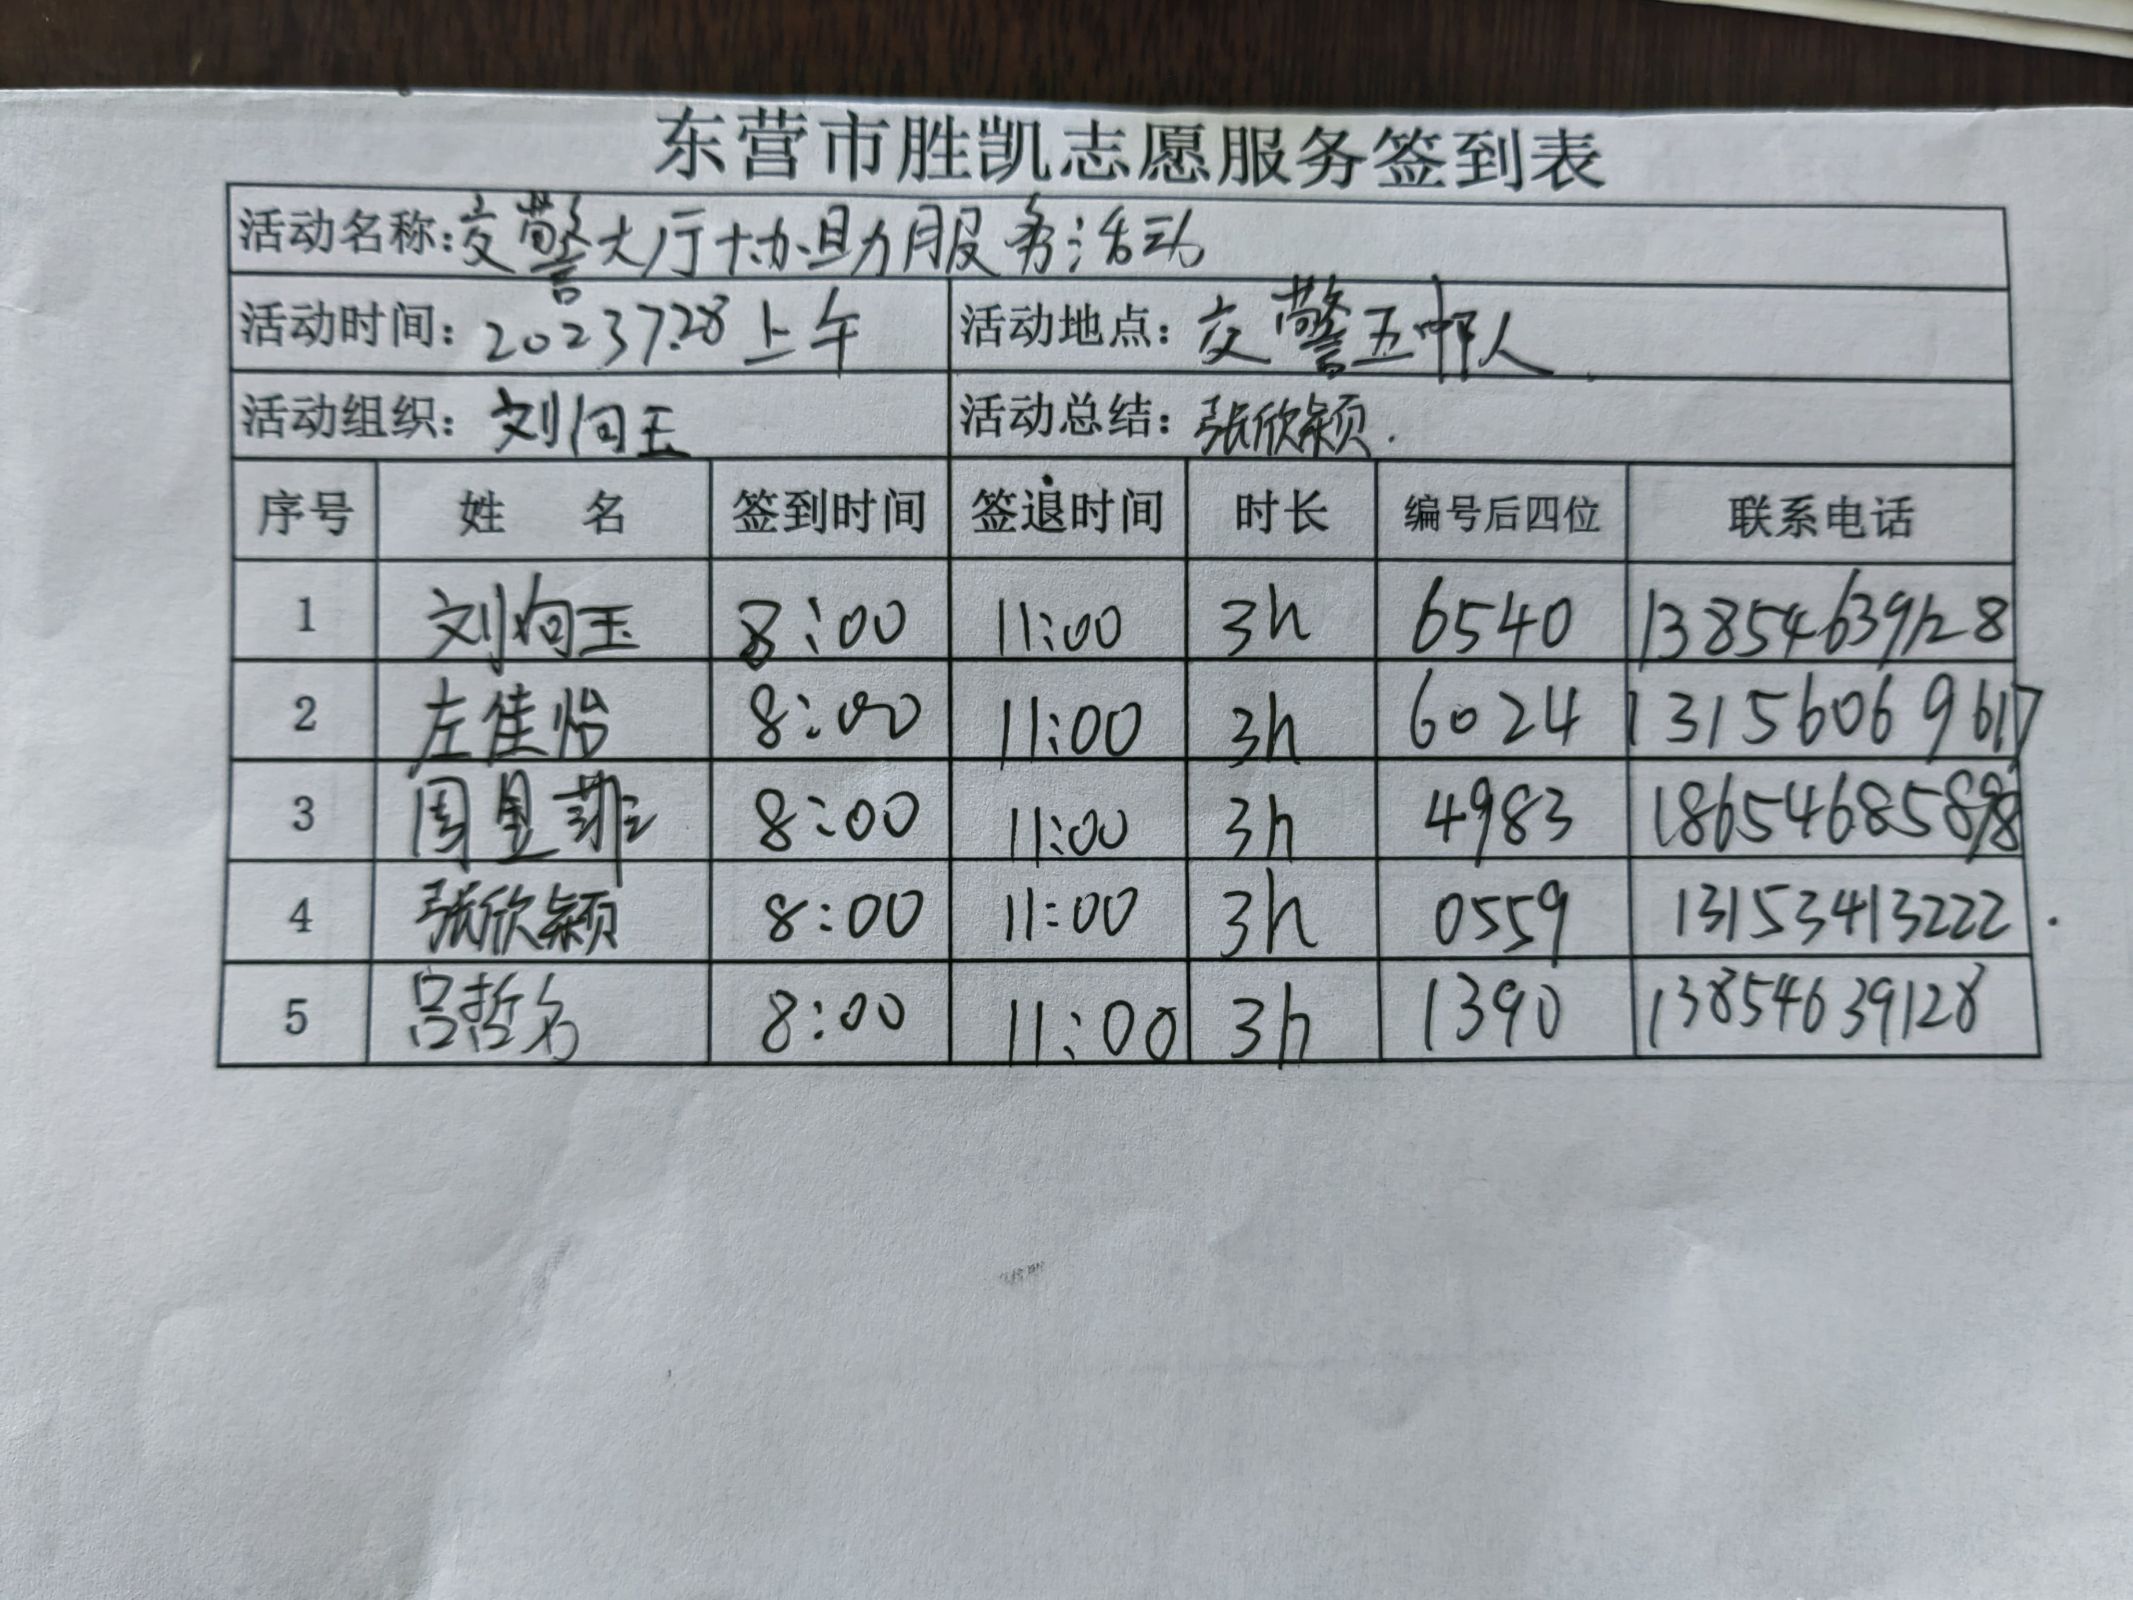 东营市胜凯志愿服务签到表
活动名称:交警大厅协助服务活动
活动时间: 2023 7.28 上午 活动地点: 交警五
活动组织: 刘向玉 活动总结: 张欣颖.
序号 姓 名 签到时间 签退时间 时长 编号后四位 联系电话
1 刘向玉 8:00 11:00 3h 6540 13854639128
2 左佳怡 8:00 11:00 3h 6024 13156069617
3 周昱菲 8:00 11:00 3h 4983 18654685898
4 张欣颖 8:00 11:00 3h 0559 13153413222.
5 吕哲 8:00 11:00 3h 1390 13854639128